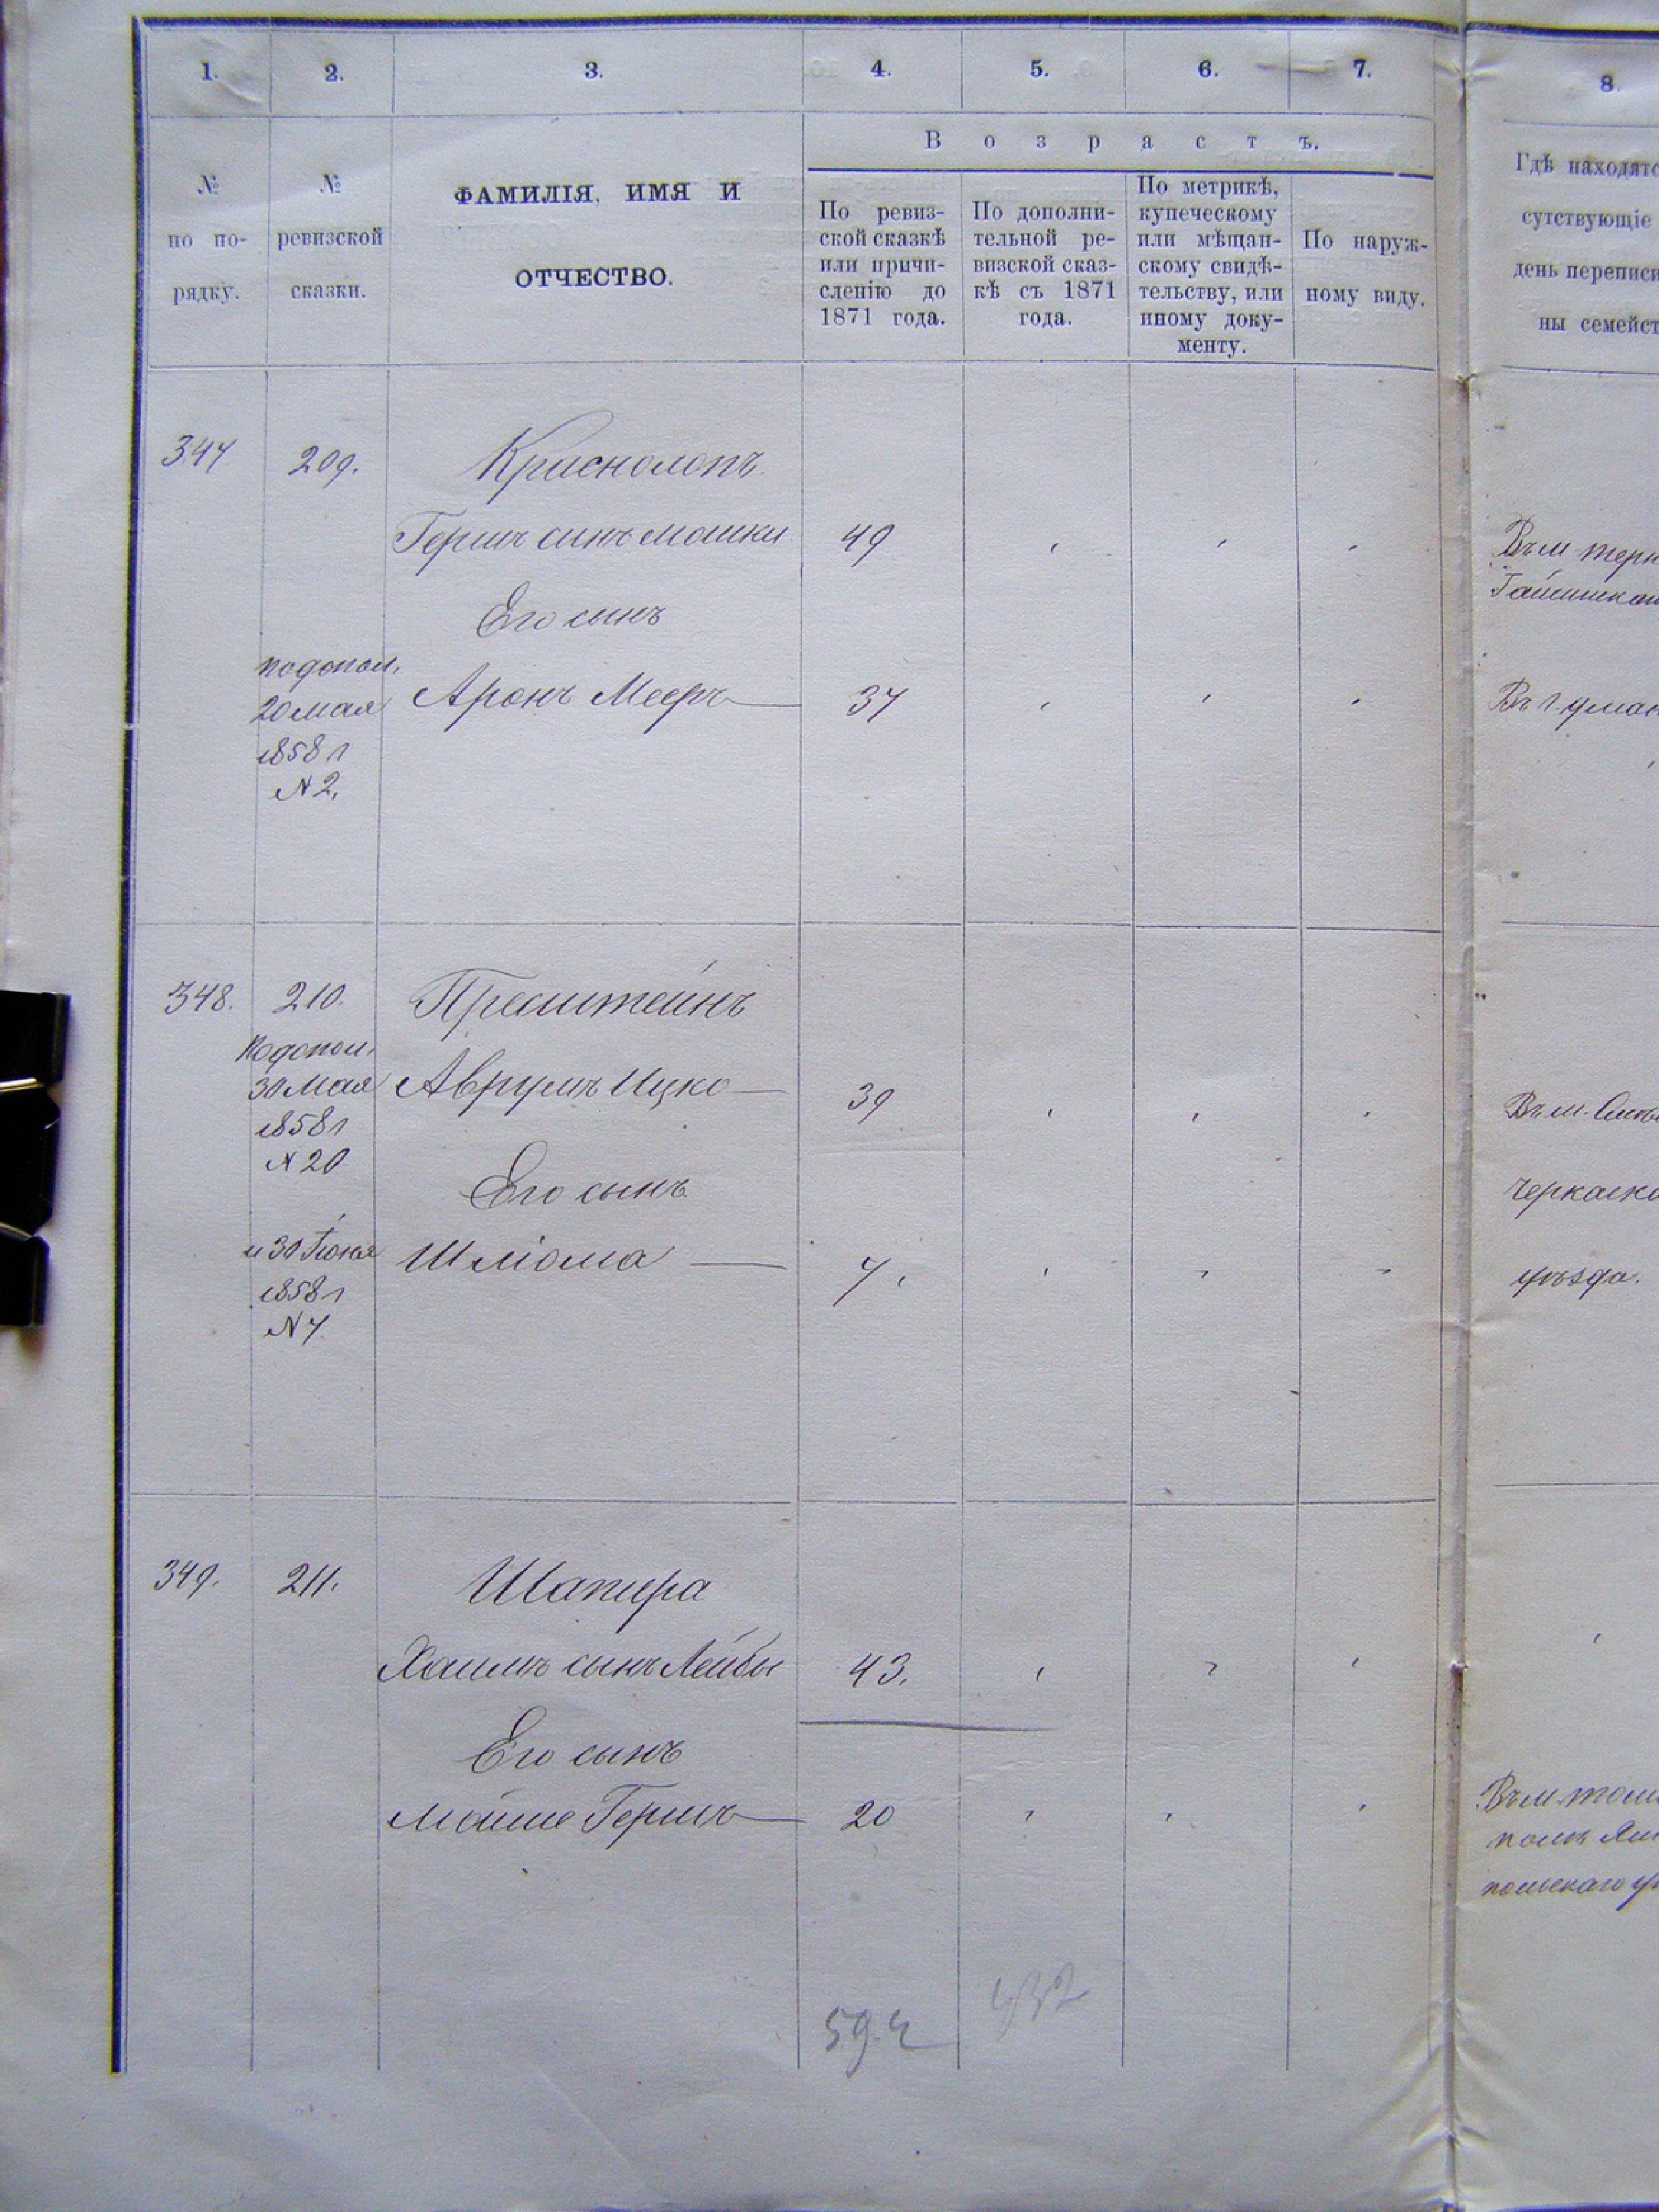 1.
2.
3.
4.
5.
6.
7.
8.
№ по по-
рядку.
№ ревизской
сказки.
ФАМИЛІЯ, ИМЯ И
ОТЧЕСТВО.
Возрастъ.
По ревиз-
ской сказкѣ
или причи-
сленію до
1871 года.
По дополни-
тельной ре-
визской сказ-
кѣ съ 1871
года.
По метрикѣ,
купеческому
или мѣщан-
скому свидѣ-
тельству, или
иному доку-
менту.
По наруж-
ному виду.
Гдѣ находятс
сутствующіе
день переписи
ны семейст
347 209. Краснолопъ
Гершъ сынъ Мошки 49
Его сынъ
подопол.
20 мая Аронъ Мееръ 37
1858 г
N 2.
Въ м. терн
Въ г. уман
348. 210. Пресштейнъ
Подопол.
30 Мая Аврумъ Ицко 39
1858 г
N 20
Его сынъ
и 30 Іюня Шліома 7.
1858 г
N 7
Въ м.
Черкаско
уѣзда.
349. 211. Шапира
Хаимъ сынъ Лейбы 43.
Его сынъ
Мойше Гершъ 20
Въ м. том
поль
польскаго у
59.
432